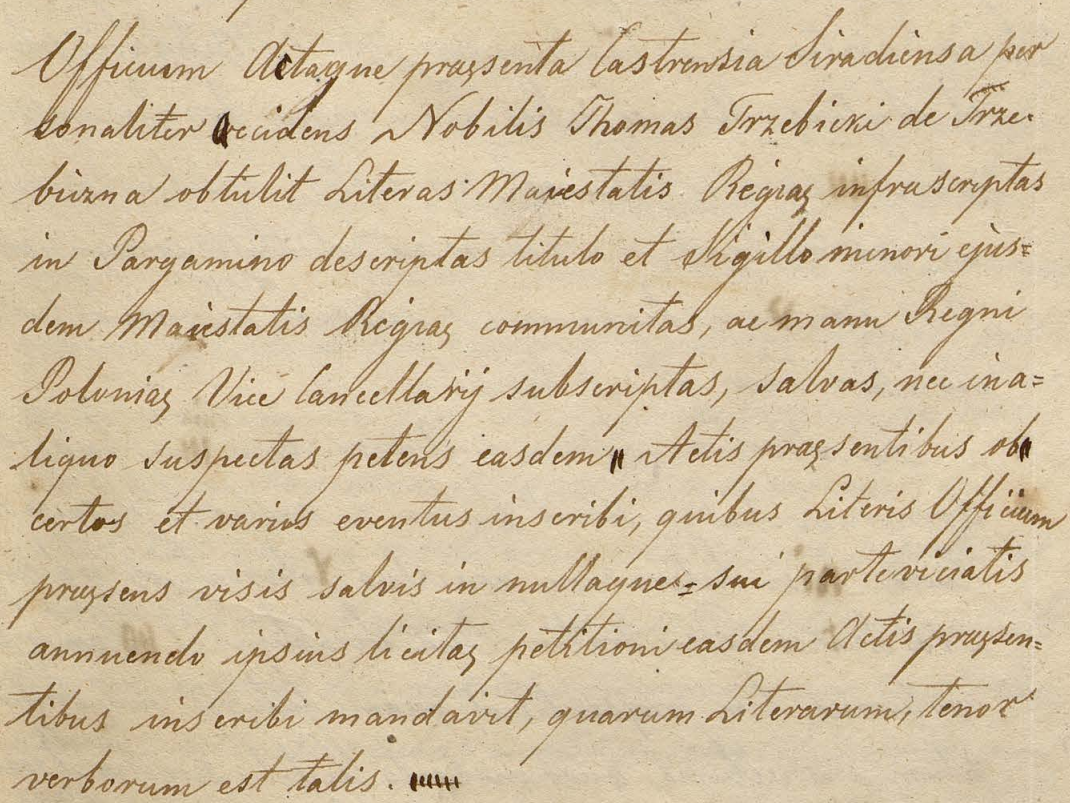 Officium Actaque pręsentia Castrensia Siradiensa per
sonaliter accidens Nobilis Thomas Trzebicki de Trze-
bizna obtulit Literas Maiestatis Regiaę infrascriptas
in Pargamino descriptas titulo et Sigillo minori ejus=
dem Maiestatis Regiaę communitas, ac manu Regni
Poloniaę Vice Cancellarij subscriptas, salvas, nec in a=
liquo suspectas petens easdem Actis praęsentibus ob
certos et varios eventus inscribi, quibus Literis Officium
praęsens visis salvis in nullaque sui parte viciatis
annuendo ipsius licitaę petitioni easdem Actis praęsen=
tibus inscribi mandavit, quarum Literarum, tenor
verborum est talis.